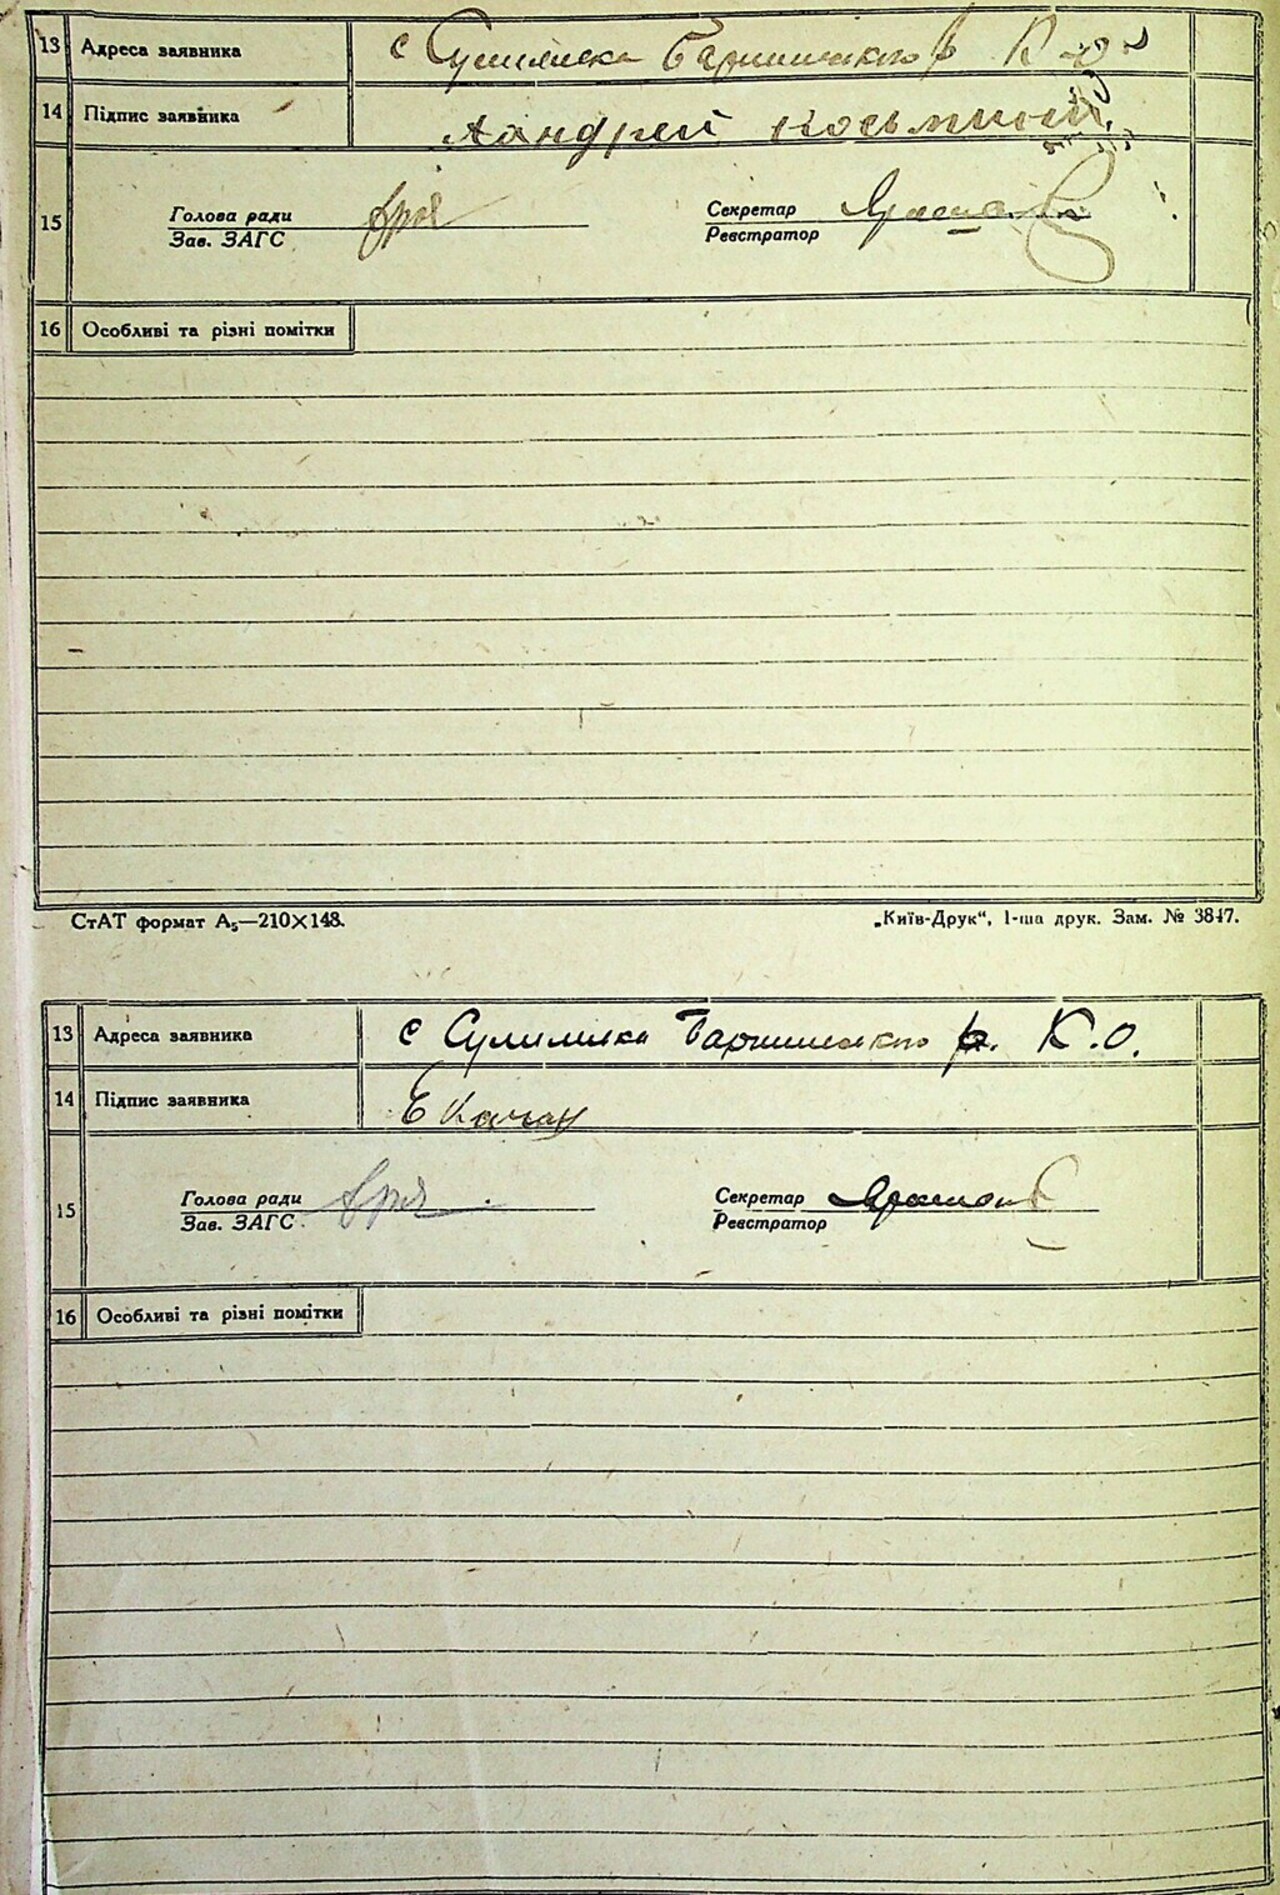 13 Адреса заявника с Сулимівка Баришівського р К-о
14 Підпис заявника Андрей Косьмин
15 Голова ради Секретар
Зав. ЗАГС Реєстратор
16 Особливі та різні помітки
СтАТ формат А₅—210×148. „Київ-Друк“, 1-ша друк. Зам. № 3847.
13 Адреса заявника с Сулимівка Баришівсько р. К.О.
14 Підпис заявника Е Качан
15 Голова ради Секретар
Зав. ЗАГС. Реєстратор
16 Особливі та різні помітки